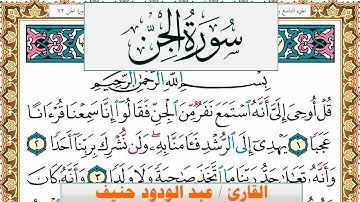 سورة الجن
بِسْمِ اللَّهِ الرَّحْمَٰنِ الرَّحِيمِ
قُلْ أُوحِيَ إِلَيَّ أَنَّهُ اسْتَمَعَ نَفَرٌ مِّنَ الْجِنِّ فَقَالُوا إِنَّا سَمِعْنَا قُرْءَانًا
عَجَبًا ١ يَهْدِي إِلَى الرُّشْدِ فَـَٔامَنَّا بِهِ وَلَن نُّشْرِكَ بِرَبِّنَا أَحَدًا ٢
وَأَنَّهُ تَعَالَىٰ جَدُّ رَبِّنَا مَا اتَّخَذَ صَاحِبَةً وَلَا وَلَدًا ٣ وَأَنَّهُ كَانَ
القارئ / عبد الودود حنيف